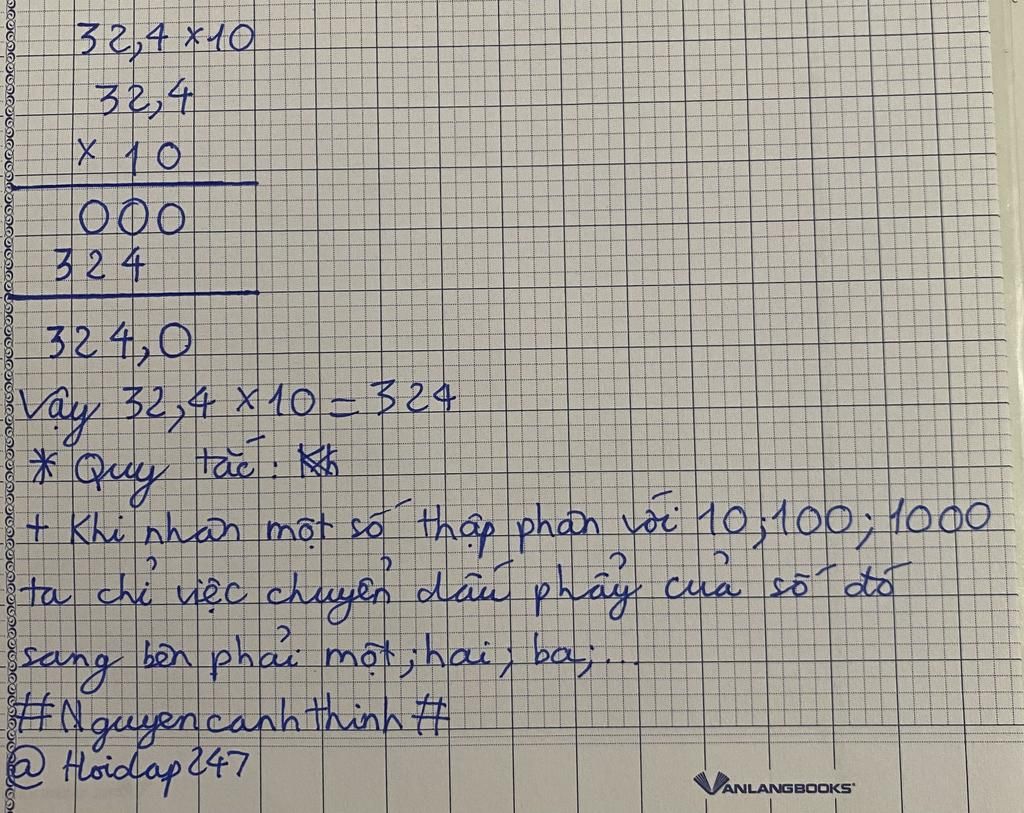 32,4 × 10
32,4
× 10
000
324
324,0
Vậy 32,4 × 10 = 324
* Quy tắc:
+ Khi nhân một số thập phân với 10; 100; 1000
ta chỉ việc chuyển dấu phẩy của số đó
sang bên phải một; hai; ba;...
#Nguyencanhthinh#
@ Hoidap247
VANLANGBOOKS